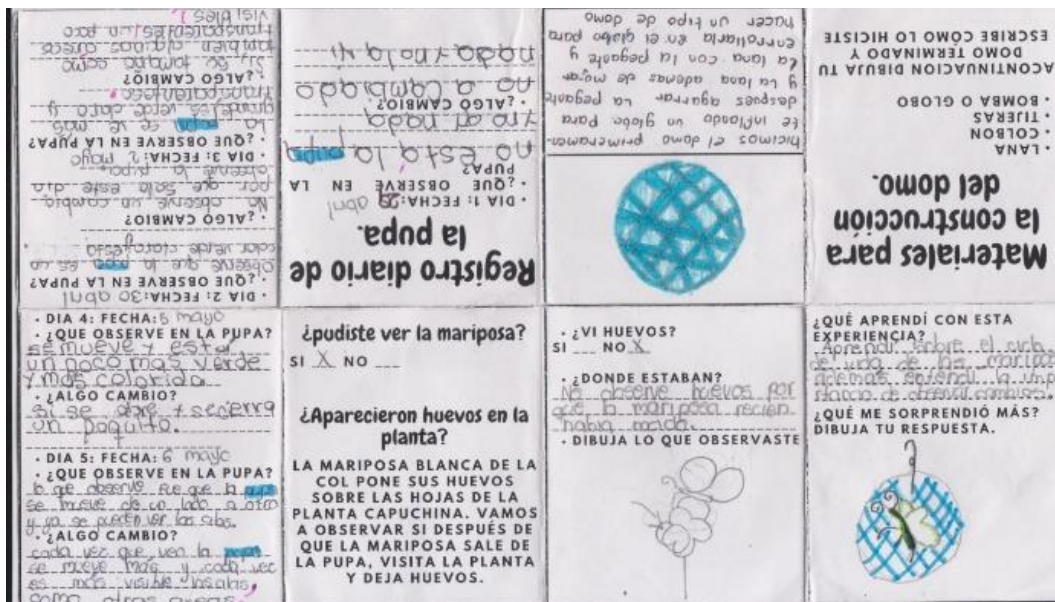 Materiales para
la construcción
del domo.
· LANA
· COLBON
· TIJERAS
· BOMBA O GLOBO
ACONTINUACION DIBUJA TU
DOMO TERMINADO Y
ESCRIBE CÓMO LO HICISTE
hicimos el domo primeramen-
te inflando un globo para
despues agarrar la pegante
y la lana ademas de mojar
la lana con la pegante y
enrrollarla en el globo para
hacer un tipo de domo
Registro diario de
la pupa.
· DIA 1: FECHA: 29 abril
· ¿QUE OBSERVE EN LA
PUPA?
no está la pupa
nada
· ¿ALGO CAMBIO?
no a cambiado
nada
· DIA 2: FECHA: 30 abril
· ¿QUE OBSERVE EN LA PUPA?
observe que la pupa es un
color verde claro
· ¿ALGO CAMBIO?
No observe un cambio
por que solo este dia
observe la pupa
· DIA 3: FECHA: 2 mayo
· ¿QUE OBSERVE EN LA PUPA?
La pupa se ve mas
grande, es verde claro y
transparente
· ¿ALGO CAMBIO?
si, su tamaño como
tambien algunas areas
transparentes un poco
visibles
· DIA 4: FECHA: 5 mayo
· ¿QUE OBSERVE EN LA PUPA?
se mueve y esta
un poco mas verde
y mas colorida
· ¿ALGO CAMBIO?
si se abre y se cierra
un poquito.
· DIA 5: FECHA: 6 mayo
· ¿QUE OBSERVE EN LA PUPA?
lo que observe fue que la pupa
se mueve de un lado a otro
y ya se pueden ver las alas.
· ¿ALGO CAMBIO?
cada vez que ven la pupa
se mueve mas y cada vez
es mas visible las alas,
como otras areas
¿pudiste ver la mariposa?
SI X NO ___
¿Aparecieron huevos en la
planta?
LA MARIPOSA BLANCA DE LA
COL PONE SUS HUEVOS
SOBRE LAS HOJAS DE LA
PLANTA CAPUCHINA. VAMOS
A OBSERVAR SI DESPUÉS DE
QUE LA MARIPOSA SALE DE
LA PUPA, VISITA LA PLANTA
Y DEJA HUEVOS.
· ¿VI HUEVOS?
SI ___ NO X
· ¿DONDE ESTABAN?
No observe huevos por
que la mariposa recien
habia nacido.
· DIBUJA LO QUE OBSERVASTE
¿QUÉ APRENDÍ CON ESTA
EXPERIENCIA?
Aprendi sobre el ciclo
de vida de las
ademas entendi la
de observar cambios.
¿QUÉ ME SORPRENDIÓ MÁS?
DIBUJA TU RESPUESTA.